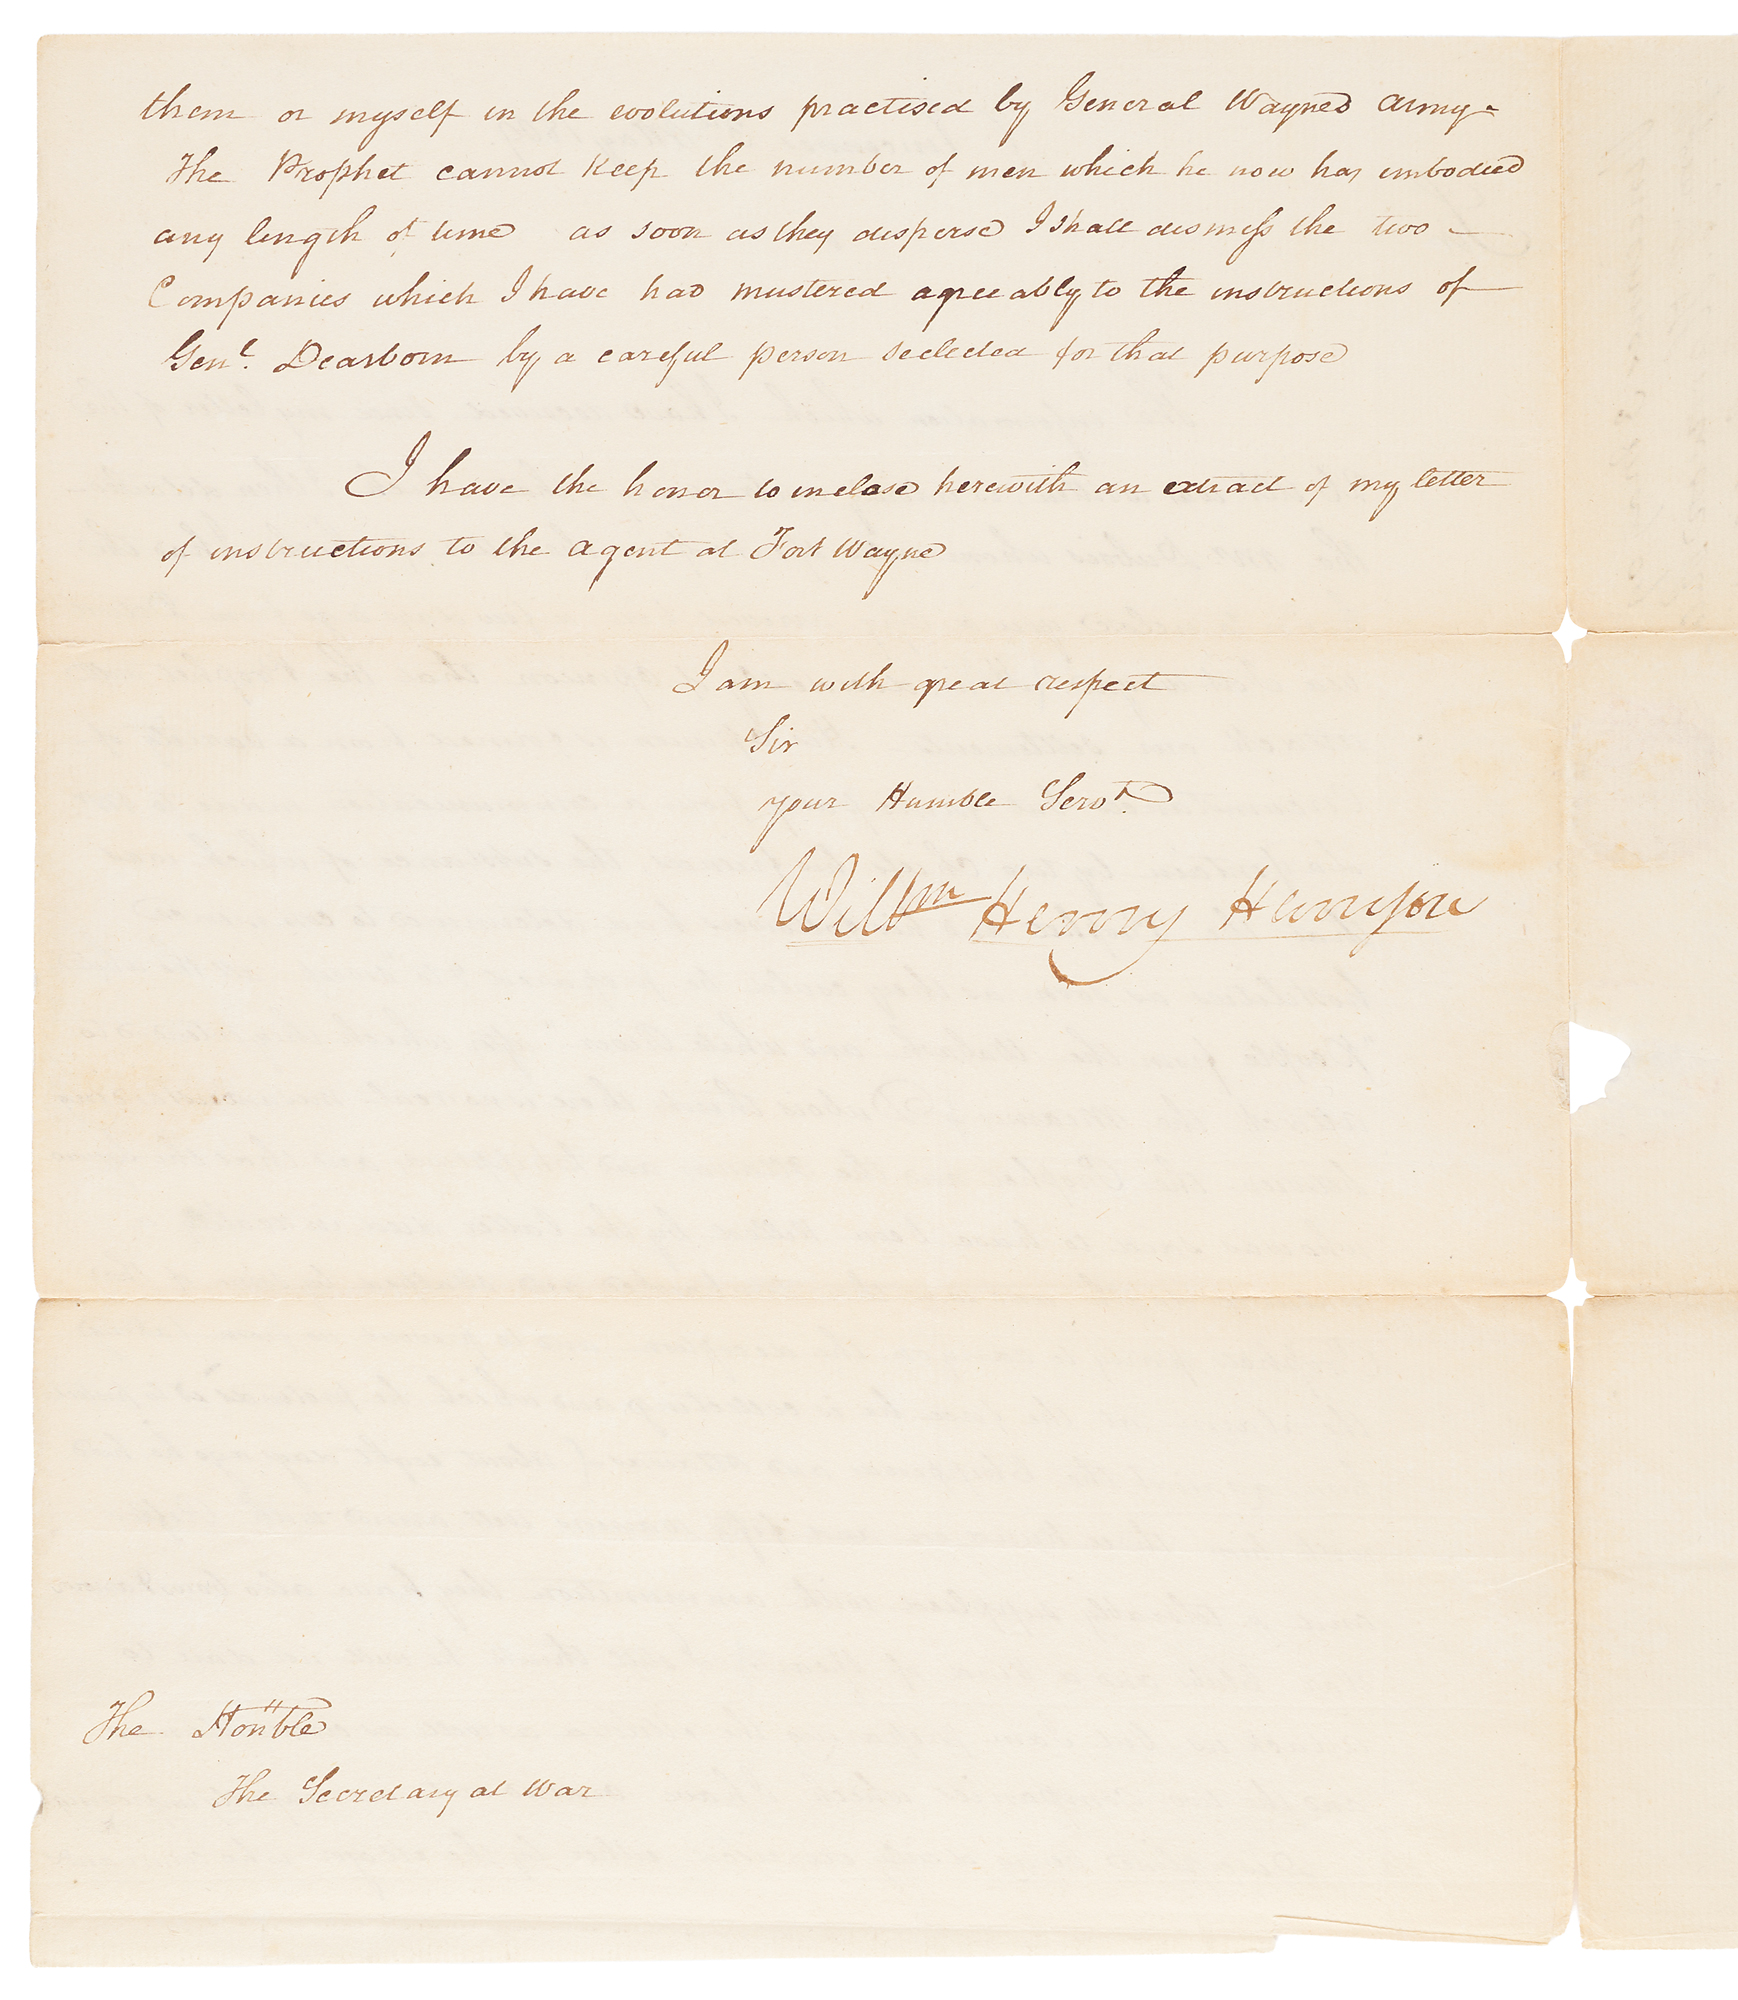 them or myself in the evolutions practised by General Waynes Army -
The Prophet cannot keep the number of men which he now has embodied
any length of time as soon as they disperse I shall dismiss the two -
Companies which I have had mustered agreeably to the instructions of
Genl. Dearborn by a careful person selected for that purpose
I have the honor to inclose herewith an extract of my letter
of instructions to the agent at Fort Wayne
I am with great respect
Sir
your Humble Servt.
Willm Henry Harrison
The Honble
The Secretary at War